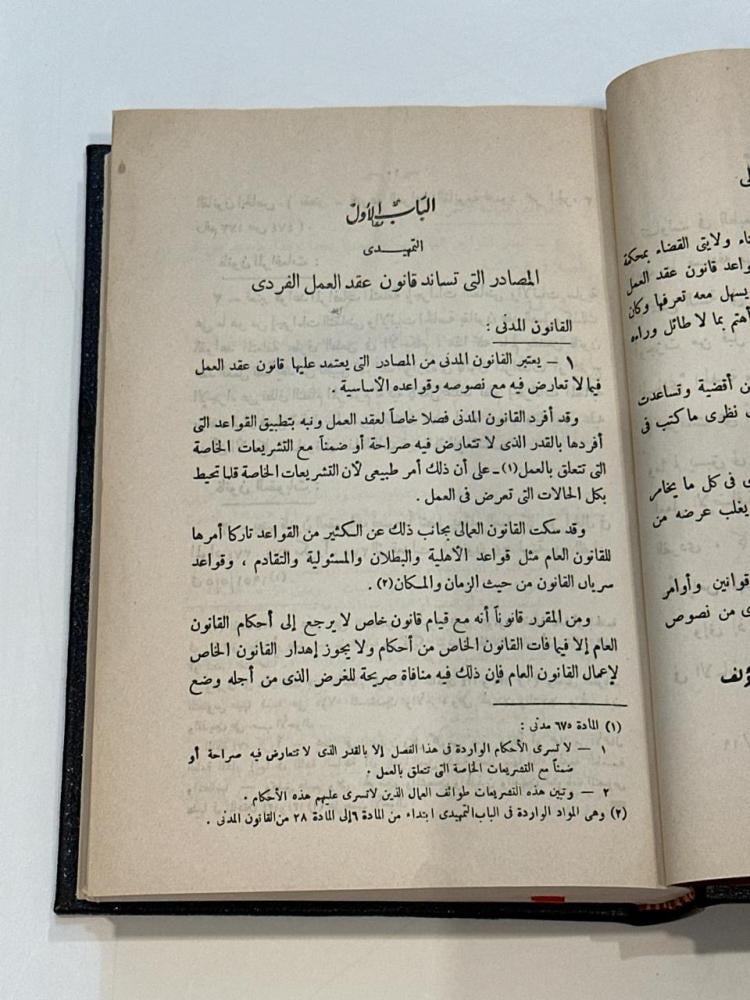 الباب الأول
التمهيدى
المصادر التى تساند قانون عقد العمل الفردى
القانون المدنى :
١ — يعتبر القانون المدنى من المصادر التى يعتمد عليها قانون عقد العمل
فيما لا تعارض فيه مع نصوصه وقواعده الأساسية .
وقد أفرد القانون المدنى فصلا خاصاً لعقد العمل ونبه بتطبيق القواعد التى
أفردها بالقدر الذى لا تتعارض فيه صراحة أو ضمناً مع التشريعات الخاصة
التى تتعلق بالعمل (١) ـ على أن ذلك أمر طبيعى لأن التشريعات الخاصة قلما تحيط
بكل الحالات التى تعرض فى العمل .
وقد سكت القانون العمالى بجانب ذلك عن الكثير من القواعد تاركا أمرها
للقانون العام مثل قواعد الأهلية والبطلان والمسئولية والتقادم ، وقواعد
سريان القانون من حيث الزمان والمكان (٢) .
ومن المقرر قانوناً أنه مع قيام قانون خاص لا يرجع إلى أحكام القانون
العام إلا فيما فات القانون الخاص من أحكام ولا يجوز إهدار القانون الخاص
لإعمال القانون العام فإن ذلك فيه منافاة صريحة للغرض الذى من أجله وضع
(١) المادة ٦٧٥ مدنى :
١ — لا تسرى الأحكام الواردة فى هذا الفصل إلا بالقدر الذى لا تتعارض فيه صراحة أو
ضمناً مع التشريعات الخاصة التى تتعلق بالعمل .
٢ — وتبين هذه التشريعات طوائف العمال الذين لا تسرى عليهم هذه الأحكام .
(٢) وهى المواد الواردة فى الباب التمهيدى ابتداء من المادة ٦ إلى المادة ٢٨ من القانون المدنى .
ولايتى القضاء بمحكمة
قواعد قانون عقد العمل
يسهل معه تعرفها وكان
أهتم بما لا طائل وراءه
من أقضية وتساعدت
نظرى ما كتب فى
فى كل ما يخامر
يغلب عرضه من
قوانين وأوامر
من نصوص